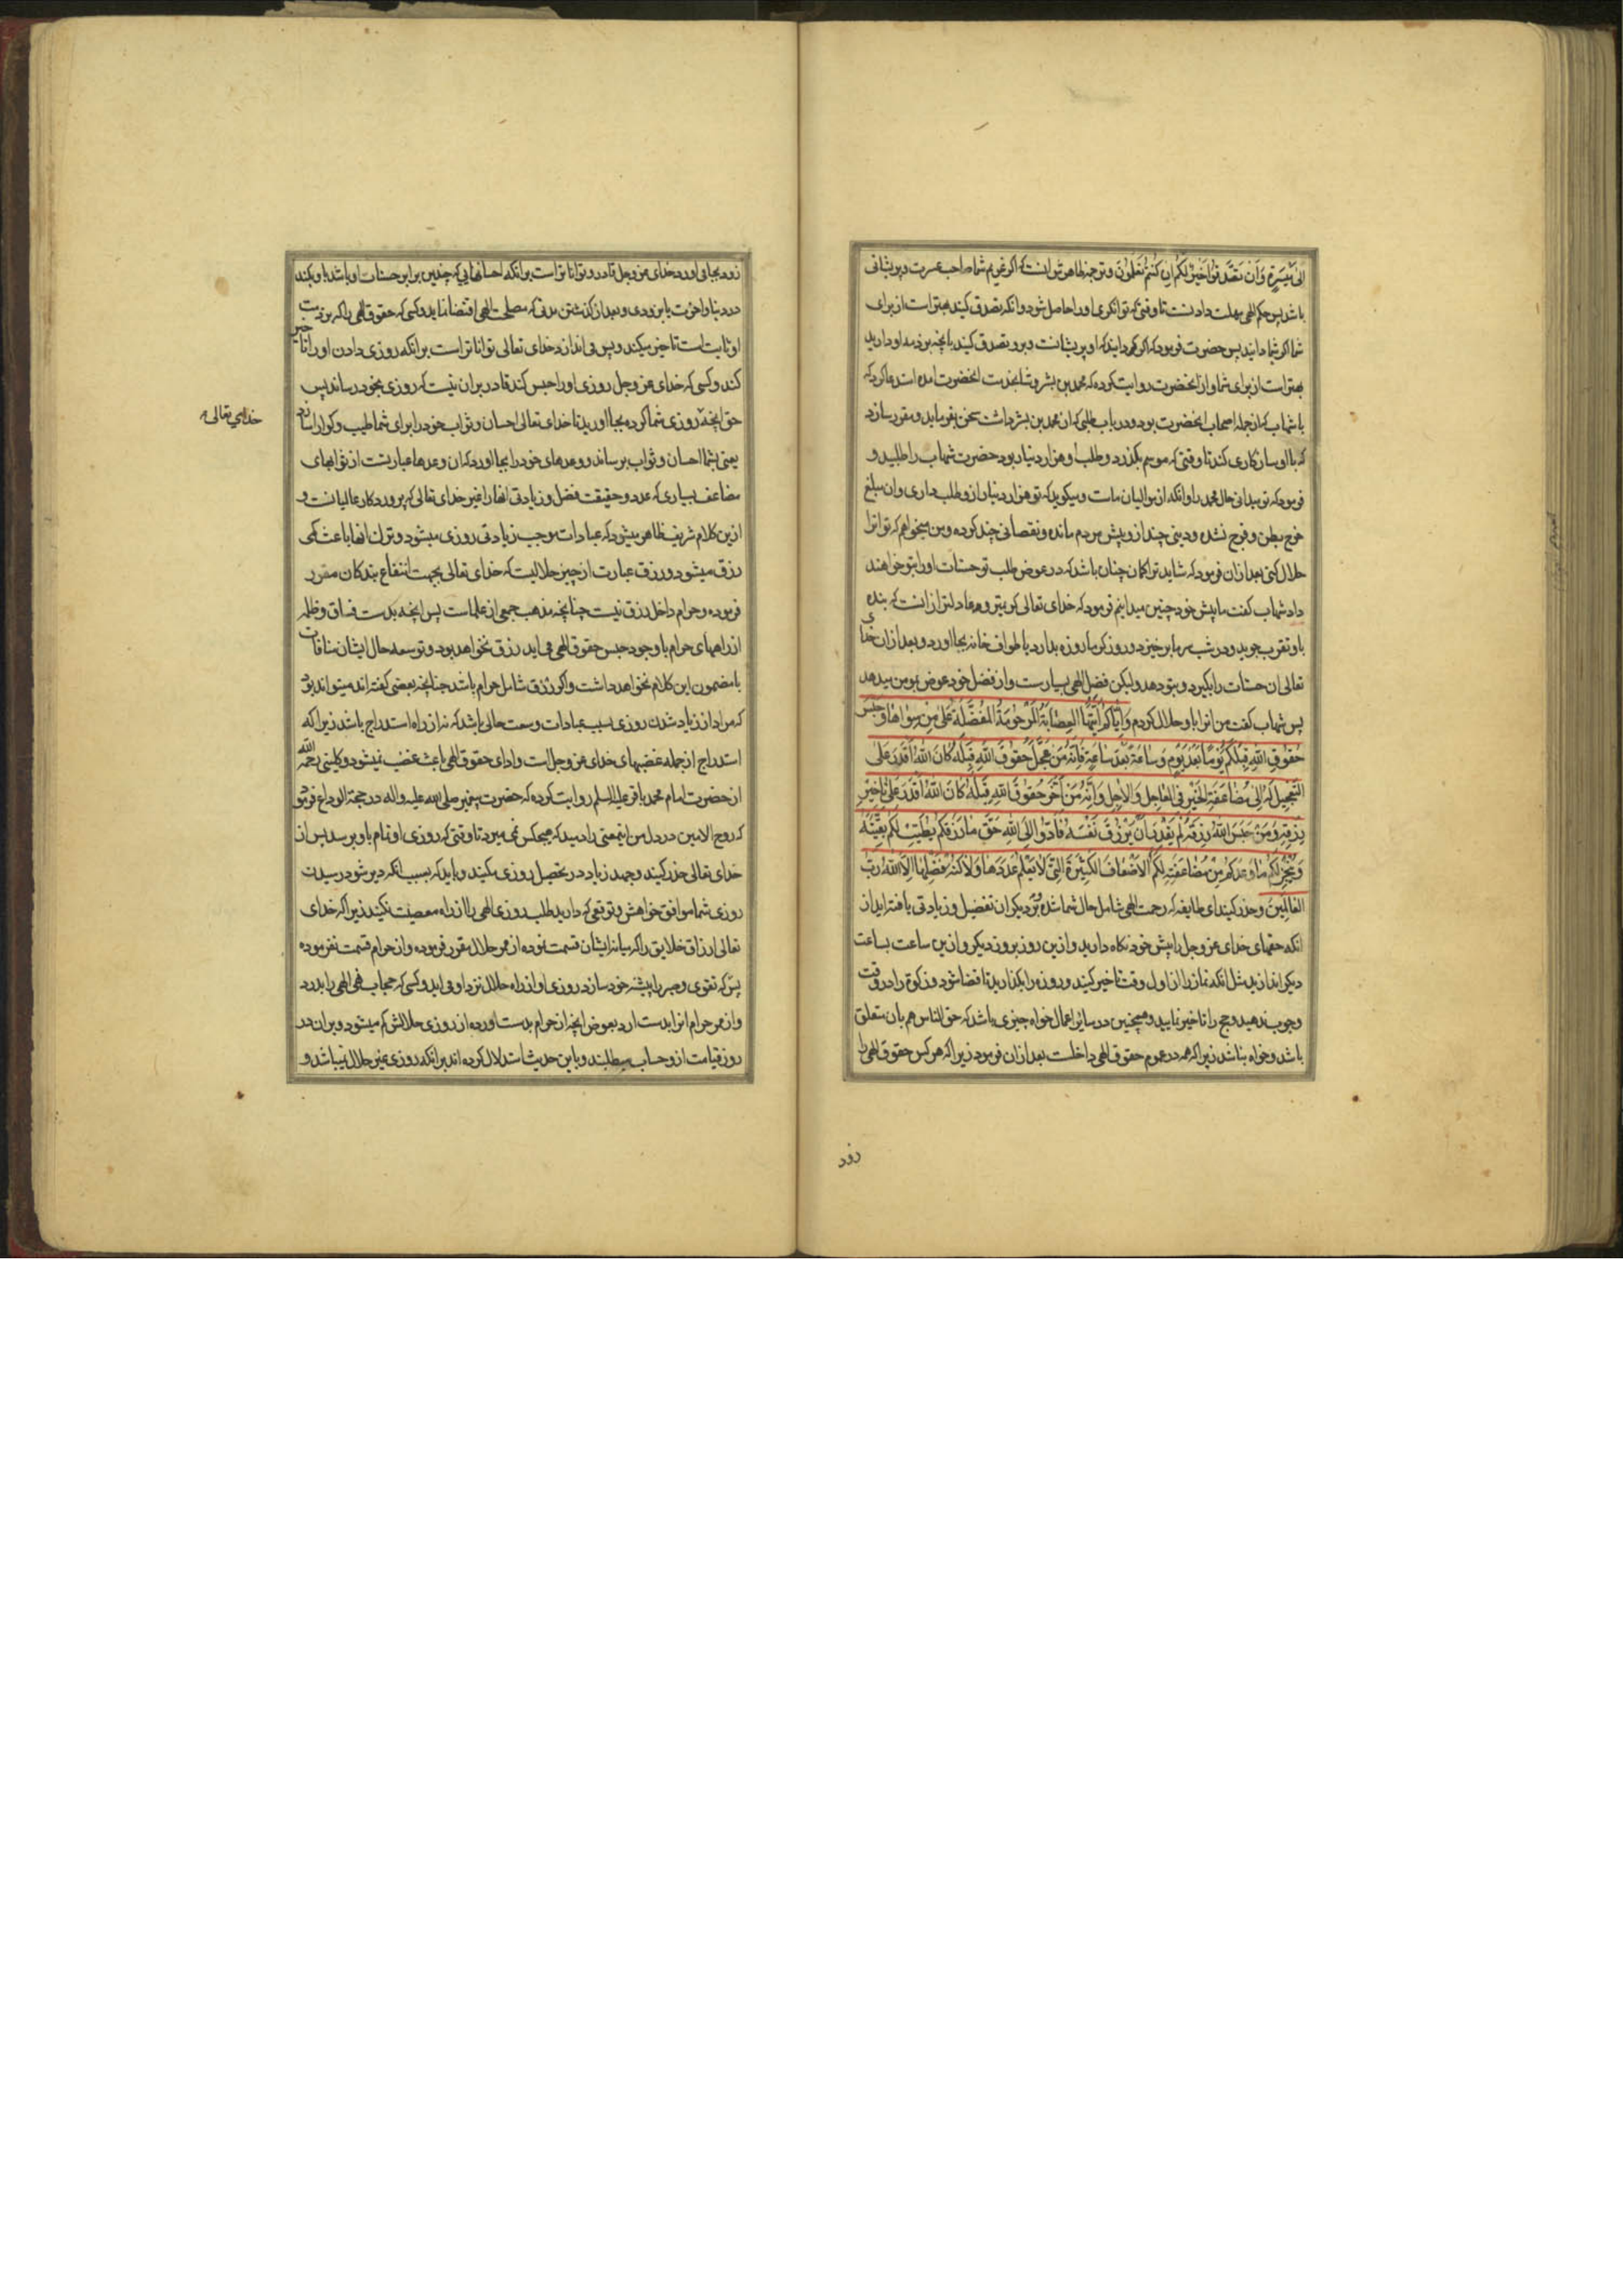 الی میسرة وان تصدقوا خیر لکم ان کنتم تعلمون وترجمه ظاهرش انست که اکر غریم شما صاحب عسرت و پریشانی
باشد پس حکم الهی مهلت دادنست تا وقتی که توانکری او را حاصل شود و انکه تصدق کنید بهتر است از برای
شما اکر شما دانید پس حضرت فرمود که اکر میدانید که او پریشانست و برو تصدق کنید بانچه بر ذمه او دارید
بهتر است از برای شما و از انحضرت روایت کرده که محمد بن بشر وشا بخدمت انحضرت امده استدعا کرد که
با شهاب که از جمله اصحاب انحضرت بود و در باب طلبی که از محمد بن بشر داشت سخن بفرماید و مقرر سازد
که با او سازکاری کند تا وقتی که موسم بکذرد و طلب او هزار دینار بود حضرت شهاب را طلبید و
فرمود که تو میدانی حال محمد را و انکه از موالیان ماست و میکوید که تو هزار دینار ازو طلب داری و ان مبلغ
خرج بطن و فرج نشده و دینی چند ازو پیش مردم مانده و نقصانی چند کرده و من میخواهم که تو انرا
حلال کنی بعد از ان فرمود که شاید ترا کمان چنان باشد که در عوض طلب تو حسنات او را بتو خواهند
داد شهاب کفت ما پیش خود چنین میدانیم فرمود که خدای تعالی کریمتر و عادلتر از انست که بنده
باو تقرب جوید و در شب سرما بر خیزد و روز کرما روزه بدارد یا طواف خانه بجا اورد و بعد از ان خدای
تعالی ان حسنات را بکیرد و بتو دهد ولیکن فضل الهی بسیارست و از فضل خود عوض بمومن میدهد
پس شهاب کفت من انرا باو حلال کردم وایاکم ایتها العصابة المرحومة المفضلة علی من سواها وحبس
حقوق الله قبلکم یوما بعد یوم وساعة بعد ساعة فانه من عجل حقوق الله قبله کان الله اقدر علی
التعجیل له الی مضاعفة الخیر فی العاجل والاجل وانه من اخر حقوق الله قبله کان الله اقدر علی تاخیر
رزقه ومن حبس الله رزقه لم یقدر ان یرزق نفسه فادوا الی الله حق ما رزقکم یطیب لکم بقیته
وینجز لکم ما وعدکم من مضاعفته لکم الاضعاف الکثیرة التی لا یعلم عددها ولا کنه فضلها الا الله رب
العالمین وحذر کنید ای طایفه که رحمت الهی شامل حال شما شده و بر دیکران تفضیل و زیادتی یافته اید از
انکه حقهای خدای عز وجل را پیش خود نکاه دارید و ازین روز بروز دیکر و ازین ساعت بساعت
دیکر اندازید مثل انکه نماز را از اول وقت تاخیر کنید و روزه را بکذارید تا قضا شود و زکوة را در وقت
وجوب ندهید و حج را تاخیر نمایید و همچنین در سایر اعمال خواه چیزی باشد که حق الناس هم بان متعلق
باشد و خواه نباشد زیرا که همه در عموم حقوق الهی داخلست بعد از ان فرمود زیرا که هر کس حقوق الهی را
زود
زود بجا می اورد خدای عز وجل قادر و تواناتر است برانکه احسانهایی که چندین برابر حسنات او باشد باو بکند
در دنیا و اخرت یا بزودی و بعد از کذشتن مدتی که مصلحت الهی اقتضا نماید و کسی که حقوق الهی را که بر ذمت
او ثابت است تاخیر میکند و پس می اندازد خدای تعالی تواناتر است برانکه روزی دادن او را تاخیر
کند و کسی که خدای عز وجل روزی او را حبس کند قادر بران نیست که روزی بخود رساند پس
حق انچه روزی شما کرده بجا اورید تا خدای تعالی احسان و ثواب خود را برای شما طیب و کوارا سازد
خدای تعالی
یعنی بشما احسان و ثواب برساند و وعدهای خود را بجا اورد که ان وعدها عبارتست از ثوابهای
مضاعف بسیاری که عدد و حقیقت فضل و زیادتی انها را غیر خدای تعالی که پروردکار عالمیانست و
ازین کلام شریف ظاهر میشود که عبادات موجب زیادتی روزی میشود و ترک انها باعث کمی
رزق میشود و رزق عبارت از چیز حلالیست که خدای تعالی بجهت انتفاع بندکان مقرر
فرموده و حرام داخل رزق نیست چنانچه مذهب جمعی از علماست پس انچه بدست فساق و ظلمه
از راههای حرام با وجود حبس حقوق الهی می اید رزق نخواهد بود و توسعه حال ایشان منافات
با مضمون این کلام نخواهد داشت و اکر رزق شامل حرام باشد چنانچه بعضی کفته اند میتواند بود
که مراد از زیاد شدن روزی بسبب عبادات وسعت حالی باشد که نه از راه استدراج باشد زیرا که
استدراج از جمله غضبهای خدای عز وجل است و ادای حقوق الهی باعث غضب نمیشود و کلینی رحمه الله
از حضرت امام محمد باقر علیه السلم روایت کرده که حضرت پیغمبر صلی الله علیه واله در حجة الوداع فرمود
که روح الامین در دل من اینمعنی را دمید که هیچکس نمی میرد تا وقتی که روزی او تمام باو برسد پس از
خدای تعالی حذر کنید و جهد زیاد در تحصیل روزی مکنید و باید که بسبب انکه دیر شود رسیدن
روزی شما موافق خواهش و توقعی که دارید طلب روزی الهی را از راه معصیت نکنید زیرا که خدای
تعالی ارزاق خلایق را که میانه ایشان قسمت نموده از ممر حلال مقرر فرموده و از حرام قسمت نفرموده
پس که تقوی و صبر را پیشه خود سازد روزی او از راه حلال نزد او می اید و کسی که حجاب نهی الهی را بدرد
و از ممر حرام انرا بدست ارد بعوض انچه از حرام بدست اورده از روزی حلالش کم میشود و بران در
روز قیامت ازو حساب میطلبند و باین حدیث استدلال کرده اند برانکه روزی غیر حلال نمیباشد و